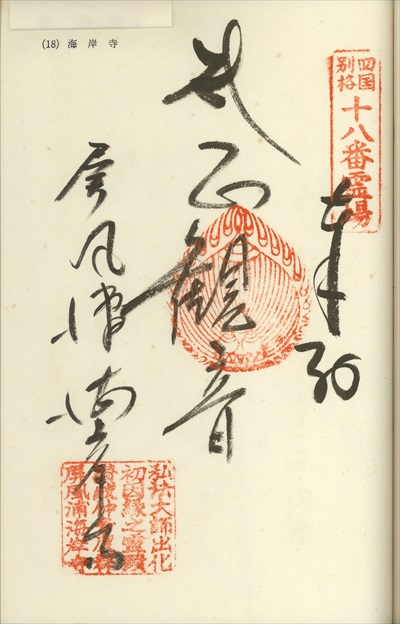 (18) 海岸寺
四国
別格
十八番霊場
奉納
正観音
屏風浦 海岸寺
弘法大師出化
初因縁之霊蹟
屏風浦海岸寺